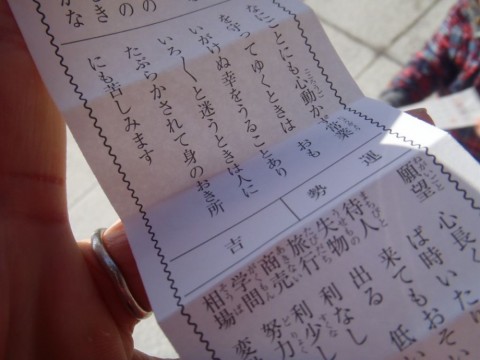 なにごとにも心動かず常業
を守ってゆくときはおも
いがけぬ幸をうることあり
いろ〳〵と迷うときは人に
たぶらかされて身のおき所
にも苦しみます
運勢
吉
願望 心長く
ば時いた
待人 来ても
失物 出る 低
旅行 利なし
商売 利少し
学問 努力
相場 変